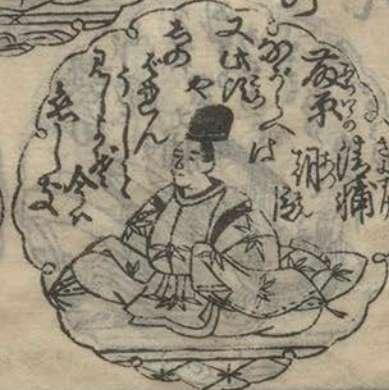 藤原清輔朝臣
ながらへば
又此頃
や
しの
ばれん
うしと
見しよぞ
今は
恋しき